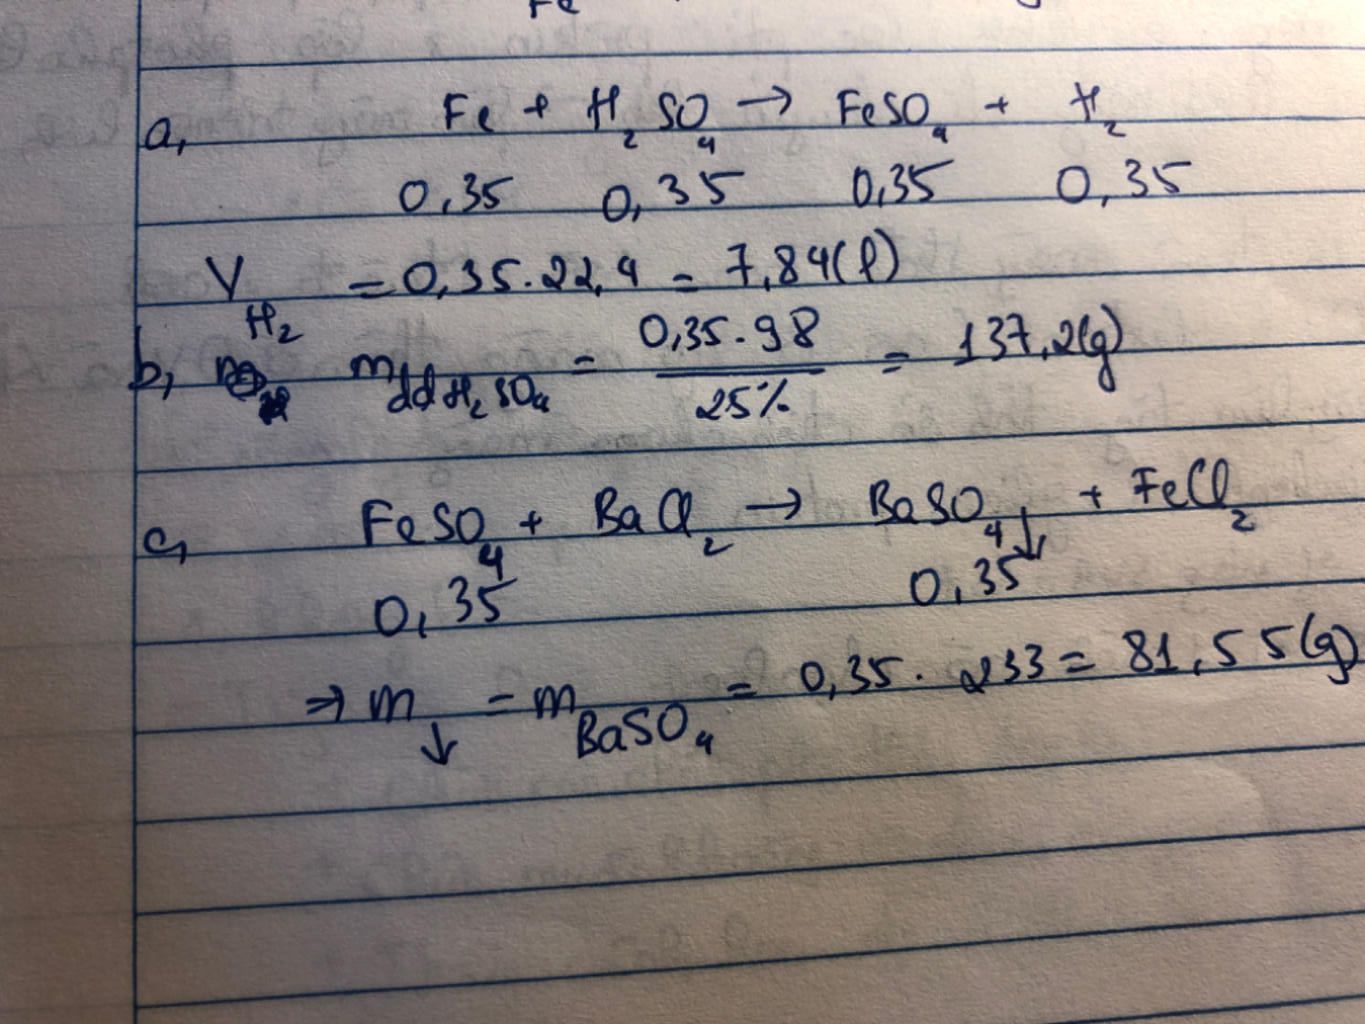 Fe
a, Fe + H₂SO₄ → FeSO₄ + H₂
0,35 0,35 0,35 0,35
V_H₂ = 0,35.22,4 = 7,84(l)
b, m_ddH₂SO₄ = 0,35.98 / 25% = 137,2(g)
c, FeSO₄ + BaCl₂ → BaSO₄↓ + FeCl₂
0,35 0,35
⇒ m↓ = m_BaSO₄ = 0,35. 233 = 81,55(g)